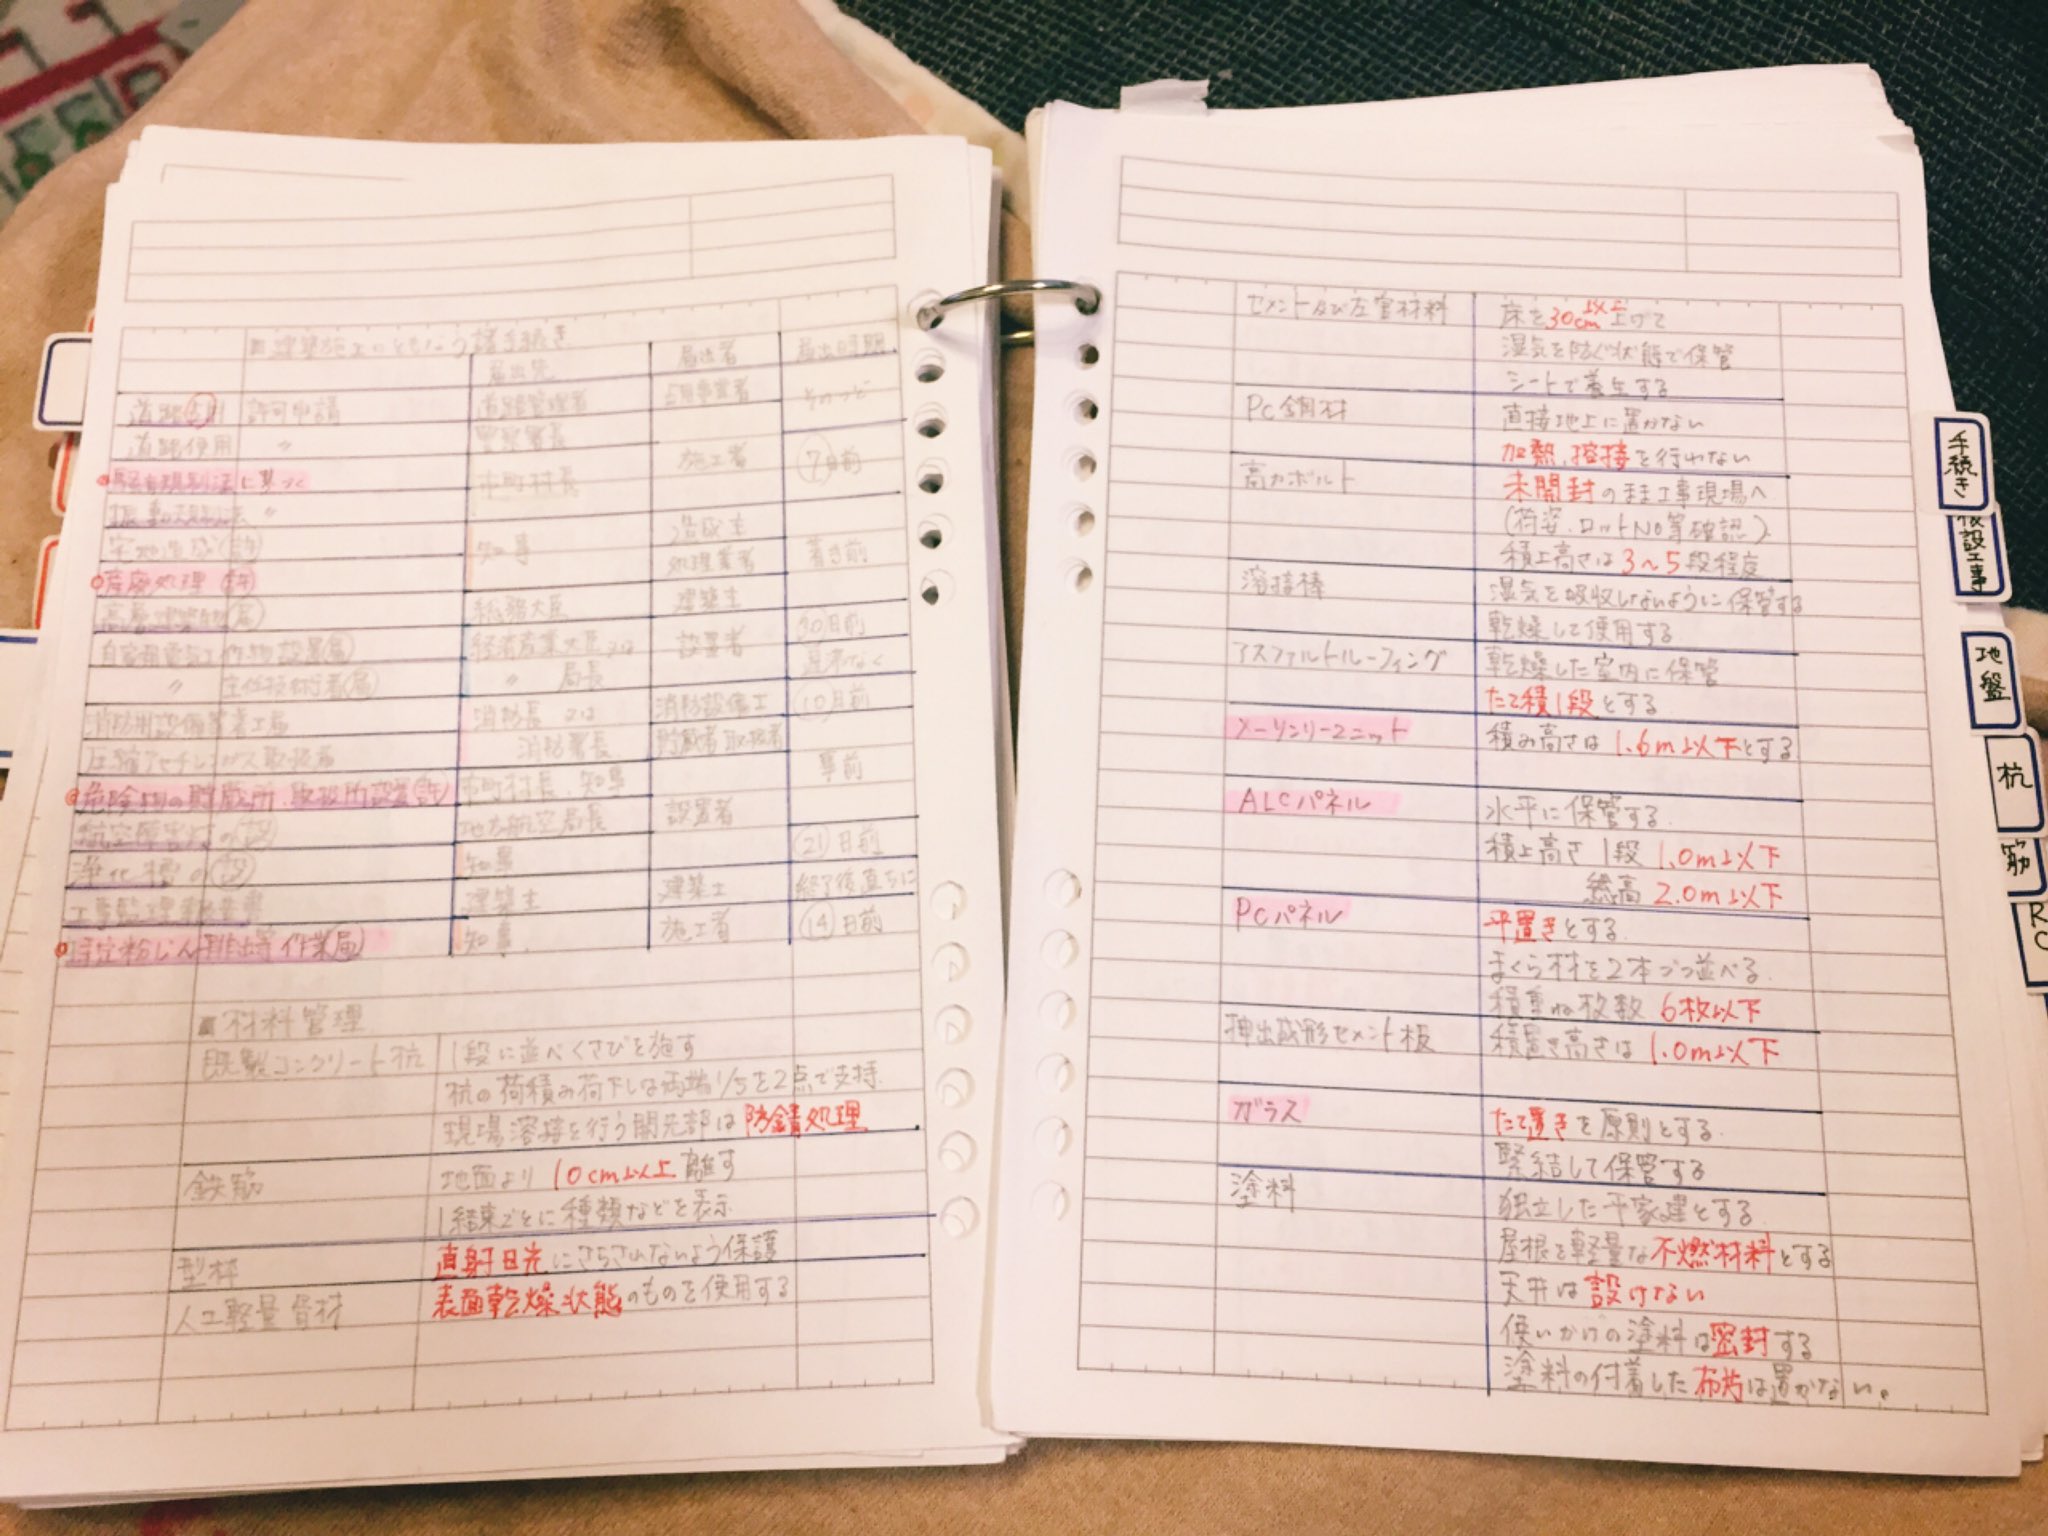 ■建築施工のともなう諸手続き
届出先 届出者 届出時期
道路占用 許可申請 道路管理者 占用事業者 そのつど
道路使用 〃 警察署長 施工者 7日前
騒音規制法に基づく 市町村長
振動規制法 〃
宅地造成(許) 知事 造成主 着手前
産廃処理(許) 処理業者
高層建築物(届) 総務大臣 建築主
自家用電気工作物設置(届) 経済産業大臣又は 設置者 30日前
〃 主任技術者(届) 〃 局長 遅滞なく
消防用設備等着工届 消防長又は 消防設備士 10日前
圧縮アセチレンガス取扱届 消防署長 貯蔵者取扱者 事前
危険物の貯蔵所、取扱所設置(許) 市町村長、知事 設置者
航空障害灯の(設) 地方航空局長
浄化槽の(設) 知事 21日前
工事監理報告書 建築主 建築士 終了後直ちに
特定粉じん排出等作業(届) 知事 施工者 14日前
■材料管理
既製コンクリート杭 1段に並べくさびを施す
杭の荷積み荷下しは両端1/5を2点で支持
現場溶接を行う開先部は防錆処理
鉄筋 地面より10cm以上離す
1結束ごとに種類などを表示
型枠 直射日光にさらされないよう保護
人工軽量骨材 表面乾燥状態のものを使用する
セメント及び左官材料 床を30cm以上上げて
湿気を防ぐ状態で保管
シートで養生する
PC鋼材 直接地上に置かない
加熱、溶接を行わない
高力ボルト 未開封のまま工事現場へ
(荷姿、ロットNo等確認)
積上高さは3〜5段程度
溶接棒 湿気を吸収しないように保管する
乾燥して使用する
アスファルトルーフィング 乾燥した室内に保管
たて積1段とする
メーソンリーユニット 積み高さは1.6m以下とする
ALCパネル 水平に保管する
積上高さ1段 1.0m以下
総高 2.0m以下
PCパネル 平置きとする
まくら材を2本づつ並べる
積重ね枚数 6枚以下
押出成形セメント板 積置き高さは1.0m以下
ガラス たて置きを原則とする
緊結して保管する
塗料 独立した平家建とする
屋根を軽量な不燃材料とする
天井は設けない
使いかけの塗料は密封する
塗料の付着した布片は置かない。
手続き
仮設工事
地盤
杭
筋
RC